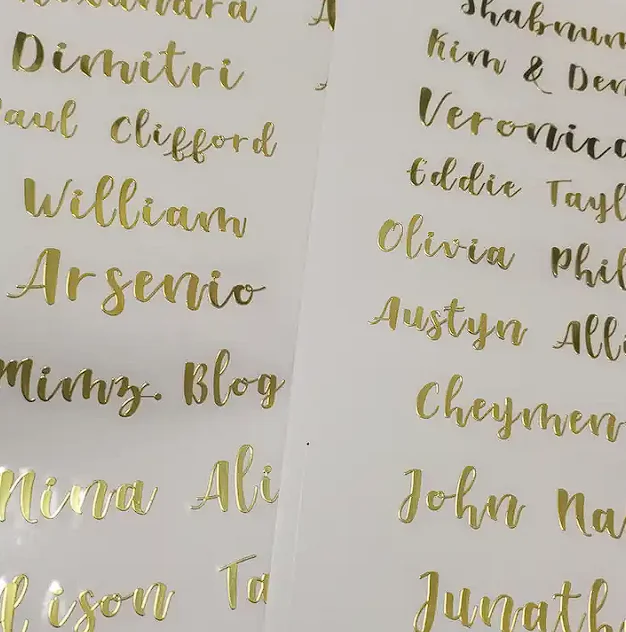 Dimitri
Paul Clifford
William
Arsenio
Mimz. Blog
Nina Ali
Ta
Shabnum
Kim & Den
Veronica
Eddie Tayl
Olivia Phil
Austyn Alli
Cheymen
John Na
Junath